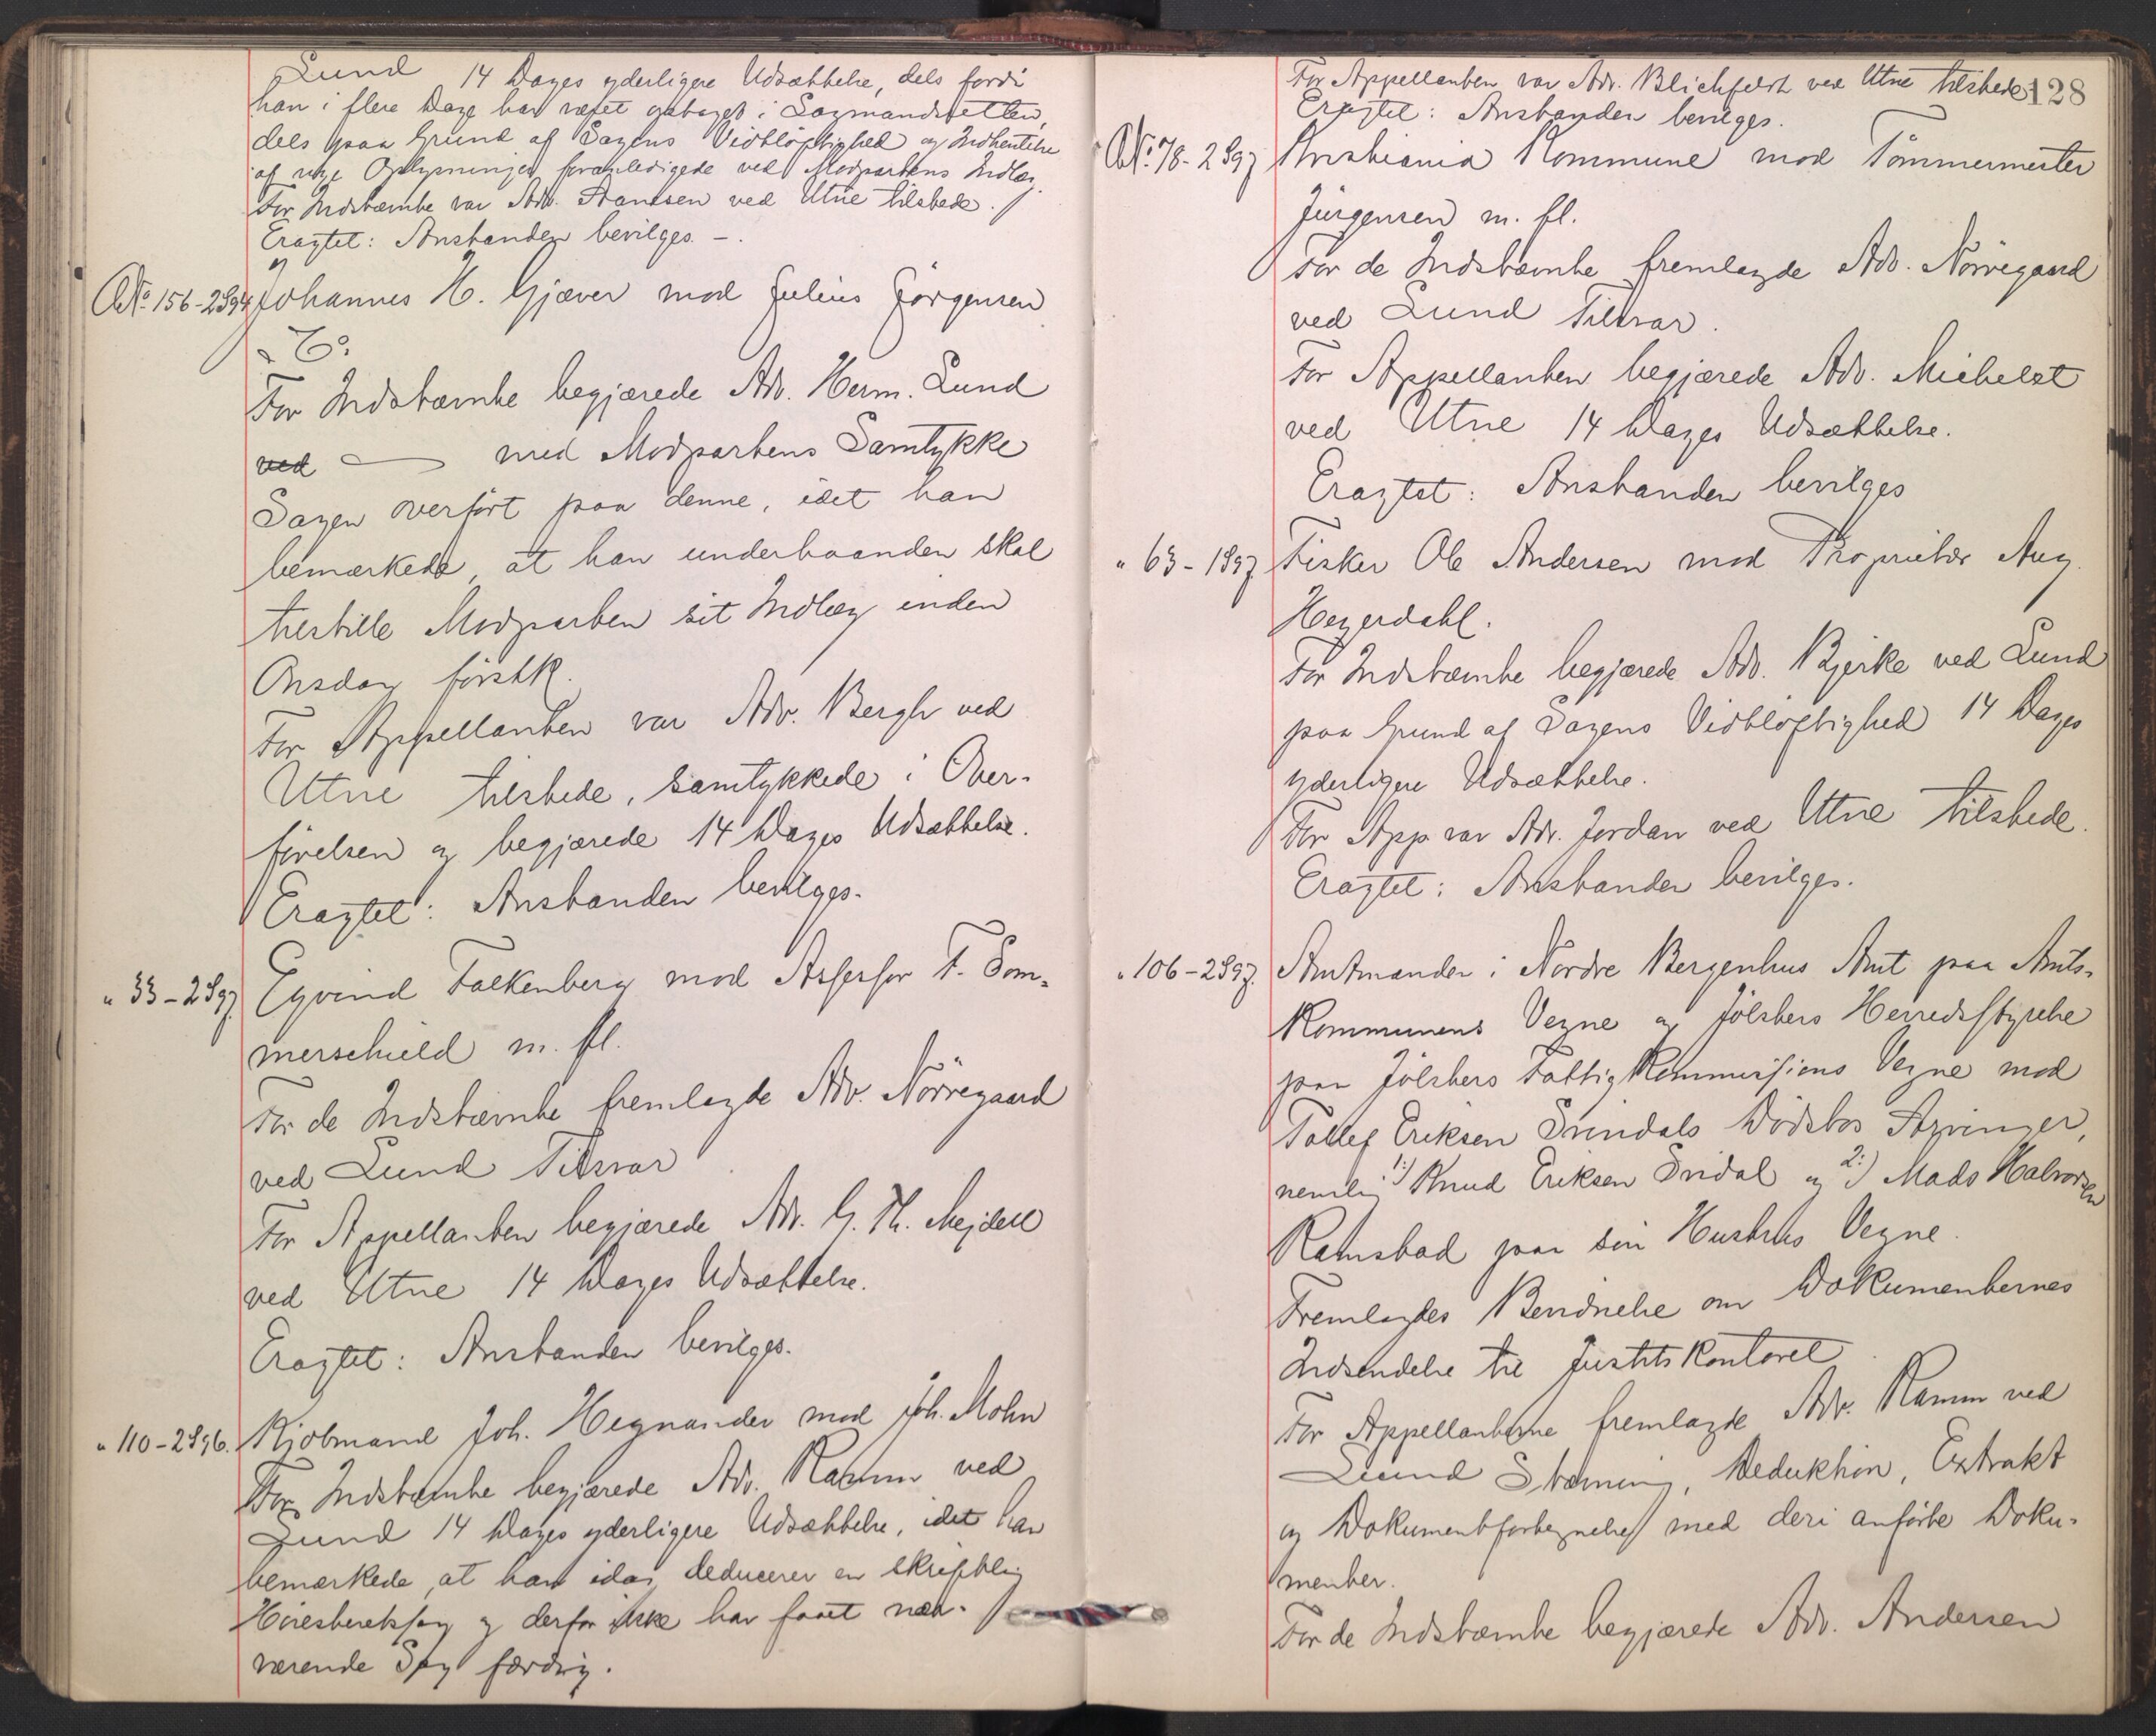 Lund 14 Dages yderligere Udsættelse, dels fordi
han i flere Dage har været optaget i Lagmandsretten,
dels paa Grund af Sagens Vidtløftighed og Indhentelse
af nye Oplysninger, foranledigede ved Modpartens Indlæg.
For Indstævnte var Adv. Hansen ved Utne tilstede.
Eragtet: Anstanden bevilges. –
No. 156-2S94 Johannes H. Gjæver mod Julius Jörgensen
& Co.
For Indstævnte begjærede Adv. Herm. Lund
ved — med Modpartens Samtykke
Sagen overført paa denne, idet han
bemærkede, at han underhaanden skal
tilstille Modparten sit Indlæg inden
Onsdag førstk.
For Appellanten var Adv. Bergh ved
Utne tilstede, samtykkede i Over-
førelsen og begjærede 14 Dages Udsættelse.
Eragtet: Anstanden bevilges.
" 33-2S97 Eyvind Falkenberg mod Assessor F. Som-
merschield m. fl.
For de Indstævnte fremlagde Adv. Nörregaard
ved Lund Tilsvar
For Appellanten begjærede Adv. G. Th. Mejdell
ved Utne 14 Dages Udsættelse.
Eragtet: Anstanden bevilges.
" 110-2S96. Kjøbmand Joh. Hegnander mod Joh. Mohn
For Indstævnte begjærede Adv. Ramm ved
Lund 14 Dages yderligere Udsættelse, idet han
bemærkede, at han idag deducerer en skriftlig
Høiesteretssag og derfor ikke har faaet nær-
værende Sag færdig.
For Appellanten var Adv. Blichfeldt ved Utne tilstede. 128
Eragtet: Anstanden bevilges.
No. 78-2S97 Kristiania Kommune mod Tömmermester
Jürgensen m. fl.
For de Indstævnte fremlagde Adv. Nörregaard
ved Lund Tilsvar.
For Appellanten begjærede Adv. Michelet
ved Utne 14 Dages Udsættelse.
Eragtet: Anstanden bevilges
" 63-1S97 Fisker Ole Andersen mod Proprietær Aug.
Heyerdahl.
For Indstævnte begjærede Adv. Bjerke ved Lund
paa Grund af Sagens Vidtløftighed 14 Dages
yderligere Udsættelse.
For App. var Adv. Jordan ved Utne tilstede.
Eragtet: Anstanden bevilges.
" 106-2S97. Amtmanden i Nordre Bergenhus Amt paa Amts-
kommunens Vegne og Jölsters Herredsstyrelse
paa Jölsters Fattigkommissions Vegne mod
Tollef Eriksen Svindals Dödsbos Arvinger,
nemlig 1:) Knud Eriksen Svidal og 2:) Mads Halvorsen
Ramstad paa sin Hustrus Vegne.
Fremlagdes Bevidnelse om Dokumenternes
Indsendelse til Justitskontoret
For Appellanterne fremlagde Adv. Ramm ved
Lund Stævning, Deduktion, Extrakt
og Dokumentfortegnelse med deri anförte Doku-
menter.
For de Indstævnte begjærede Adv. Andersen